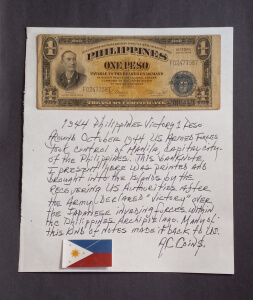 PHILIPPINES
ONE PESO
TREASURY CERTIFICATE
1944 Philippines Victory 1 Peso
Around October 1944 US Armed Forces
took control of Manila, Capital city
of the Philippines. This banknote
I present here was printed and
brought into the islands by the
recovering US Authorities after
the Army declared "Victory" over
the Japanese invading forces within
the Philippines Archipelago. Many of
this kind of notes made it back to US.